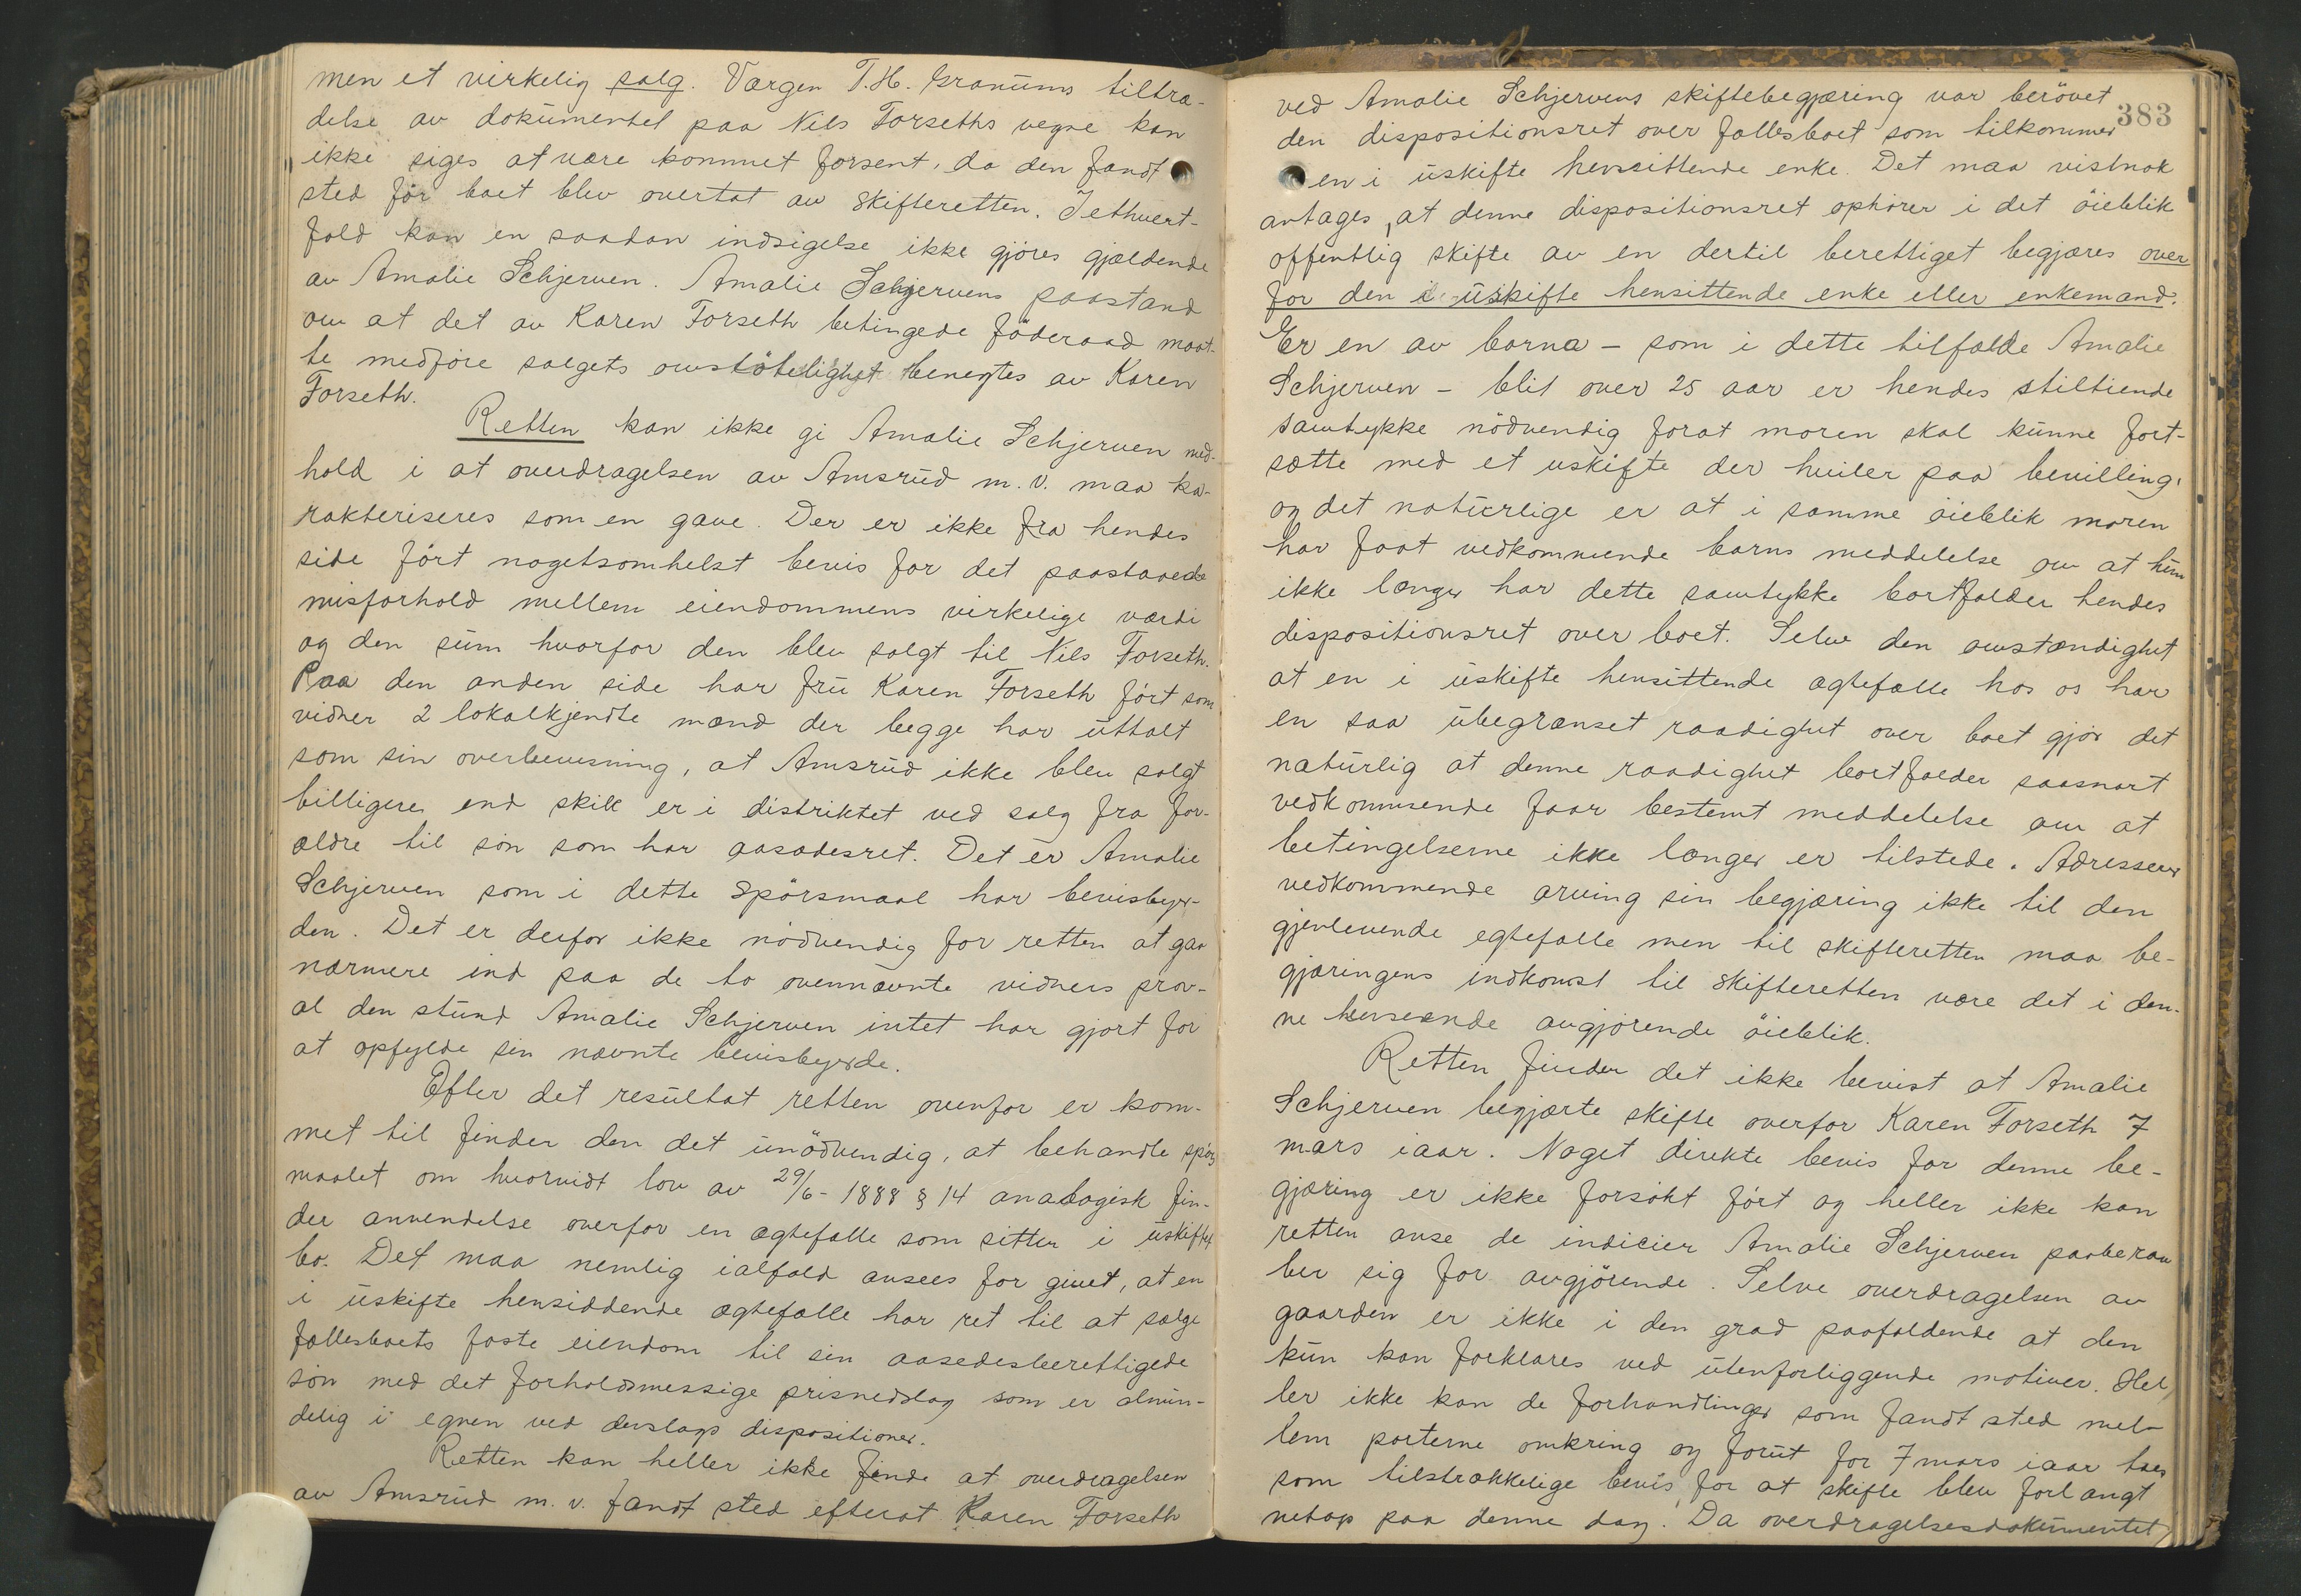 men et virkelig salg. Værgen T.H. Granums tiltræ-
delse av dokumentet paa Nils Forseths vegne kan
ikke siges at være kommet forsent, da den fandt
sted før boet blev overtat av skifteretten. I ethvert-
fald kan en saadan indsigelse ikke gjøres gjældende
av Amalie Schjerven. Amalie Schjervens paastand
om at det av Karen Forseth betingede föderaad maat-
te medføre salgets omstötelighet benegtes av Karen
Forseth.
Retten kan ikke gi Amalie Schjerven med-
hold i at overdragelsen av Amsrud m.v. maa ka-
rakteriseres som en gave. Der er ikke fra hendes
side ført nogetsomhelst bevis for det paastaaede
misforhold mellem eiendommens virkelige værdi
og den sum hvorfor den blev solgt til Nils Forseth.
Paa den anden side har fru Karen Forseth ført som
vidner 2 lokalkjendte mænd der begge har uttalt
som sin overbevisning, at Amsrud ikke blev solgt
billigere end skik er i distriktet ved salg fra for-
ældre til søn som har aasædesret. Det er Amalie
Schjerven som i dette spörsmaal har bevisbyr-
den. Det er derfor ikke nödvendig for retten at gaa
nærmere ind paa de to ovennævnte vidners prov-
al den stund Amalie Schjerven intet har gjort for
at opfylde sin nævnte bevisbyrde.
Efter det resultat retten ovenfor er kom-
met til finder den det unödvendig, at behandle spörs
maalet om hvorvidt lov av 29/6-1888 § 14 analogisk fin-
der anvendelse overfor en ægtefælle som sitter i uskiftet
bo. Det maa nemlig ialfald ansees for givet, at en
i uskifte hensiddende ægtefælle har ret til at sælge
fællesboets faste eiendom til sin aasædesberettigede
søn med det forholdsmessige prisnedslag som er almin-
delig i egnen ved denslags dispositioner.
Retten kan heller ikke finde at overdragelsen
av Amsrud m.v. fandt sted efterat Karen Forseth
383
ved Amalie Schjervens skiftebegjæring var berövet
den dispositionsret over fællesboet som tilkommer
en i uskifte hensittende enke. Det maa vistnok
antages, at denne dispositionsret ophører i det öieblik
offentlig skifte av en dertil berettiget begjæres over
for den i uskifte hensittende enke eller enkemand.
Er en av barna – som i dette tilfælde Amalie
Schjerven – blit over 25 aar er hendes stiltiende
samtykke nödvendig forat moren skal kunne fort-
sætte med et uskifte der hviler paa bevilling,
og det naturlige er at i samme öieblik moren
har faat vedkommende barns meddelelse om at hun
ikke længer har dette samtykke bortfalder hendes
dispositionsret over boet. Selve den omstændighet
at en i uskifte hensittende ægtefælle hos os har
en saa ubegrænset raadighet over boet gjør det
naturlig at denne raadighet bortfalder saasnart
vedkommende faar bestemt meddelelse om at
betingelserne ikke længer er tilstede. Adresserer
vedkommende arving sin begjæring ikke til den
gjenlevende egtefælle men til skifteretten maa be-
gjæringens indkomst til skifteretten være det i den-
ne henseende avgjørende öieblik.
Retten finder det ikke bevist at Amalie
Schjerven begjærte skifte overfor Karen Forseth 7
mars iaar. Noget direkte bevis for denne be-
gjæring er ikke forsökt ført og heller ikke kan
retten anse de indicier Amalie Schjerven paaberaa
ber sig for avgjörende. Selve overdragelsen av
gaarden er ikke i den grad paafaldende at den
kun kan forklares ved utenforliggende motiver. Hel
ler ikke kan de forhandlinger som fandt sted mel-
lem parterne omkring og forut for 7 mars iaar taes
som tilstrækkelige bevis for at skifte blev forlangt
netop paa denne dag. Da overdragelsesdokumentet